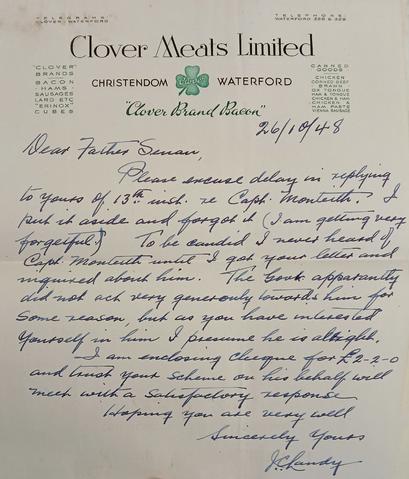 TELEGRAMS
CLOVER WATERFORD
TELEPHONE
WATERFORD 228 & 229
Clover Meats Limited
"CLOVER"
BRANDS
BACON
HAMS
SAUSAGES
LARD ETC
"ERINOX"
CUBES
CHRISTENDOM WATERFORD
"Clover Brand Bacon"
CANNED
GOODS
CHICKEN
CORNED BEEF
BRAWN
OX TONGUE
HAM & TONGUE
CHICKEN & HAM
CHICKEN &
HAM PASTE
VIENNA SAUSAGE
26/10/48
Dear Father Senan,
Please excuse delay in replying
to yours of 13th inst. re Capt. Monteith. I
put it aside and forgot it (I am getting very
forgetful!) To be candid I never heard of
Capt. Monteith until I got your letter and
inquired about him. The Govt. apparantly
did not act very generously towards him for
some reason, but as you have interested
yourself in him I presume he is allright.
I am enclosing cheque for £2-2-0
and trust your scheme on his behalf will
meet with a satisfactory response
Hoping you are very well
Sincerely Yours